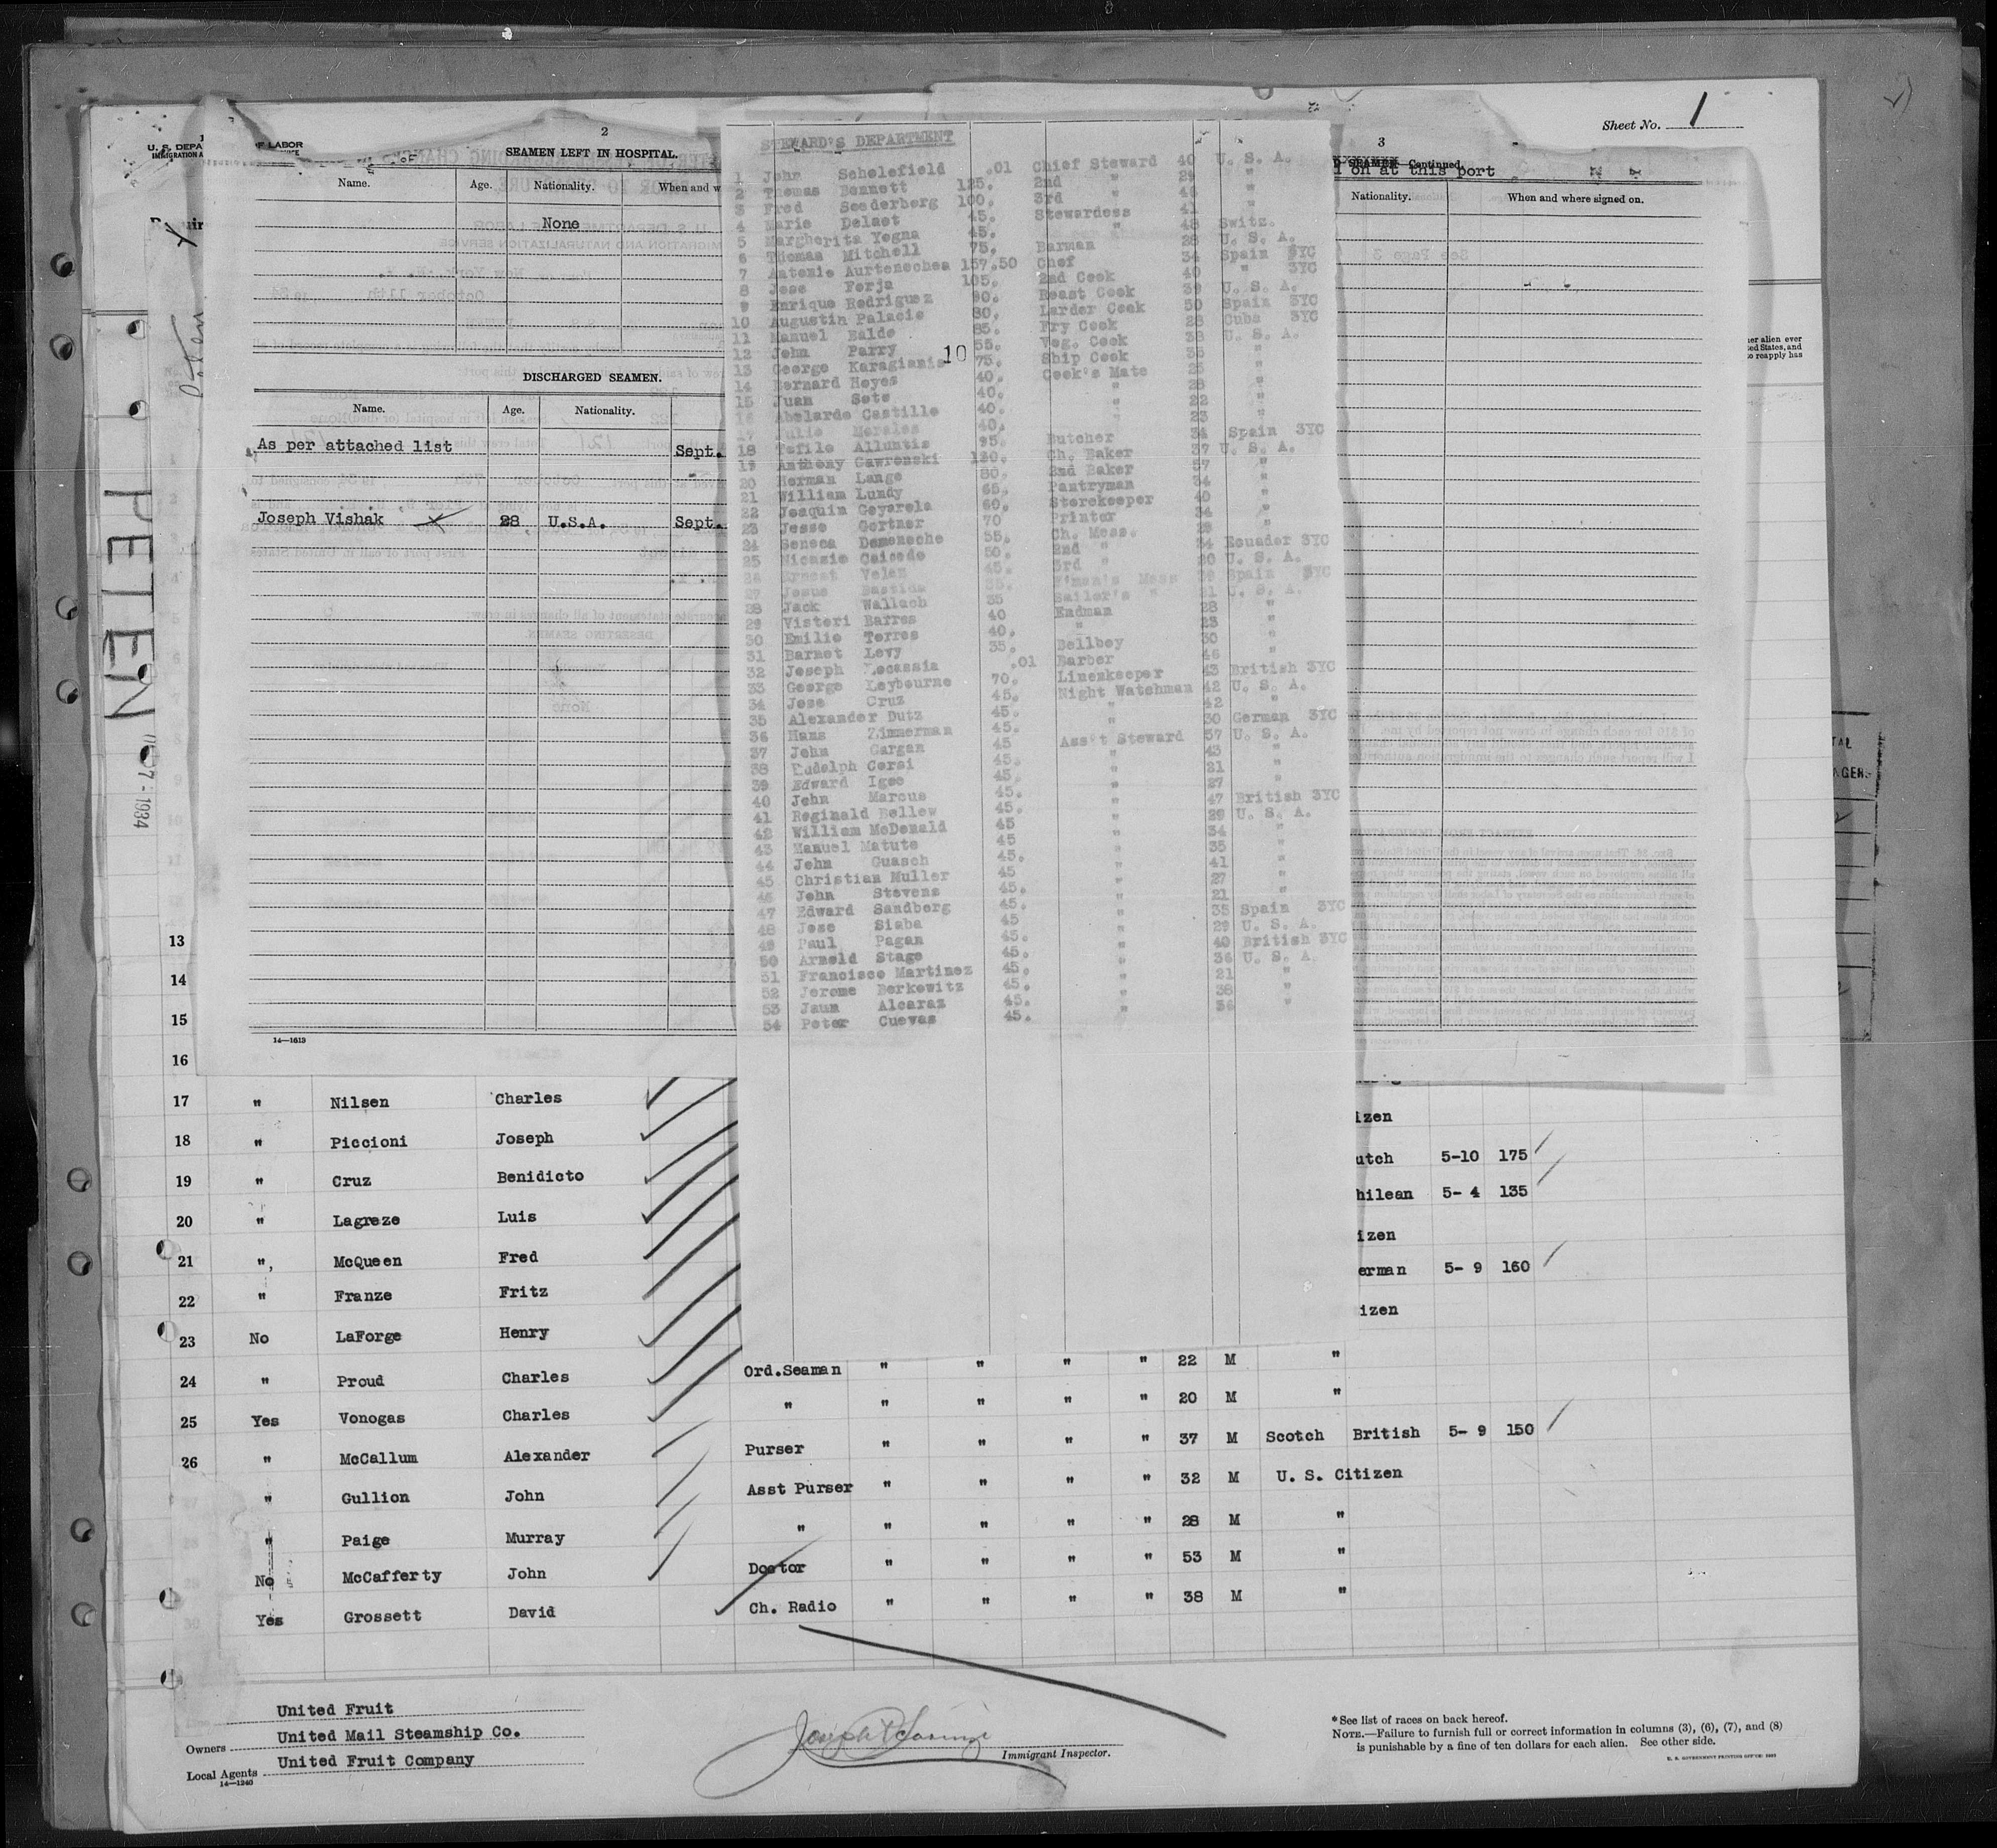 Sheet No. 1
U. S. DEPA
OF LABOR
IMMIGRATION A
2
SEAMEN LEFT IN HOSPITAL.
Name. Age. Nationality. When and w
None
DISCHARGED SEAMEN.
Name. Age. Nationality.
As per attached list Sept.
Joseph Vishak 28 U.S.A. Sept.
14—1613
3
SEAMEN Continued.
on at this port
Nationality. When and where signed on.
STEWARD'S DEPARTMENT
1 John Scholefield .01 Chief Steward 40 U. S. A.
2 Thomas Bennett 125. 2nd " 29 "
3 Fred Soederberg 100. 3rd " 46 "
4 Marie Delaet 45. Stewardess 41 "
5 Margherita Yogna 45. " 48 Switz.
6 Thomas Mitchell 75. Barman 28 U. S. A.
7 Antonio Aurtenechea 157.50 Chef 34 Spain 3YC
8 Jose Borja 105. 2nd Cook 40 " 3YC
9 Enrique Rodriguez 90. Roast Cook 39 U. S. A.
10 Augustin Palacio 80. Larder Cook 50 Spain 3YC
11 Manuel Balde 85. Fry Cook 28 Cuba 3YC
12 John Parry 55. Veg. Cook 38 U. S. A.
13 George Karagianis 10 75. Ship Cook 35 "
14 Bernard Hoyes 40. Cook's Mate 25 "
15 Juan Soto 40. " 28 "
16 Abelardo Castillo 40. " 22 "
17 Julio Morales 40. " 23 "
18 Tofilo Alluntis 95. Butcher 34 Spain 3YC
19 Anthony Gawronski 130. Ch. Baker 37 U. S. A.
20 Herman Lange 80. 2nd Baker 57 "
21 William Lundy 65. Pantryman 34 "
22 Joaquin Goyarola 60. Storekeeper 40 "
23 Jesse Gortner 70 Printer 34 "
24 Seneca Domeneche 55. Ch. Mess. 28 "
25 Nicasio Caicedo 50. 2nd " 34 Ecuador 3YC
26 Ernest Velez 45. 3rd " 20 U. S. A.
27 Jesus Bastida 35. F'man's Mess 39 Spain 3YC
28 Jack Wallach 35 Sailor's " 21 U. S. A.
29 Vistori Barros 40 Endman 28 "
30 Emilio Torres 40. " 23 "
31 Barnet Levy 35. Bellboy 30 "
32 Joseph Locassia .01 Barber 46 "
33 George Leybourne 70. Linenkeeper 43 British 3YC
34 Jose Cruz 45. Night Watchman 42 U. S. A.
35 Alexander Dutz 45. " 42 "
36 Hans Zimmerman 45. " 30 German 3YC
37 John Gargan 45 Ass't Steward 57 U. S. A.
38 Rudolph Corsi 45. " 43 "
39 Edward Igoe 45. " 21 "
40 John Marcus 45. " 27 "
41 Reginald Bellew 45. " 47 British 3YC
42 William McDonald 45 " 29 U. S. A.
43 Manuel Matute 45 " 34 "
44 John Guasch 45. " 35 "
45 Christian Muller 45 " 41 "
46 John Stevens 45. " 27 "
47 Edward Sandberg 45. " 21 "
48 Jose Siaba 45 " 35 Spain 3YC
49 Paul Pagan 45. " 29 U. S. A.
50 Arnold Stage 45. " 40 British 3YC
51 Francisco Martinez 45. " 36 U. S. A.
52 Jerome Berkowitz 45. " 21 "
53 Jaun Alcaraz 45. " 38 "
54 Peter Cuevas 45. " 36 "
PETEN
7 - 1934
13
14
15
16
17 " Nilsen Charles izen
18 " Piccioni Joseph utch 5-10 175
19 " Cruz Benidicto hilean 5- 4 135
20 " Lagreze Luis izen
21 ", McQueen Fred erman 5- 9 160
22 " Franze Fritz izen
23 No LaForge Henry Ord.Seaman " " " " 22 M "
24 " Proud Charles " " " " " 20 M "
25 Yes Vonogas Charles Purser " " " " 37 M Scotch British 5- 9 150
26 " McCallum Alexander Asst Purser " " " " 32 M U. S. Citizen
" Gullion John " " " " " 28 M "
" Paige Murray Doctor " " " " 53 M "
No McCafferty John Ch. Radio " " " " 38 M "
Yes Grossett David
Owners United Fruit
United Mail Steamship Co.
Local Agents United Fruit Company
14—1240
Immigrant Inspector.
*See list of races on back hereof.
NOTE.—Failure to furnish full or correct information in columns (3), (6), (7), and (8)
is punishable by a fine of ten dollars for each alien. See other side.